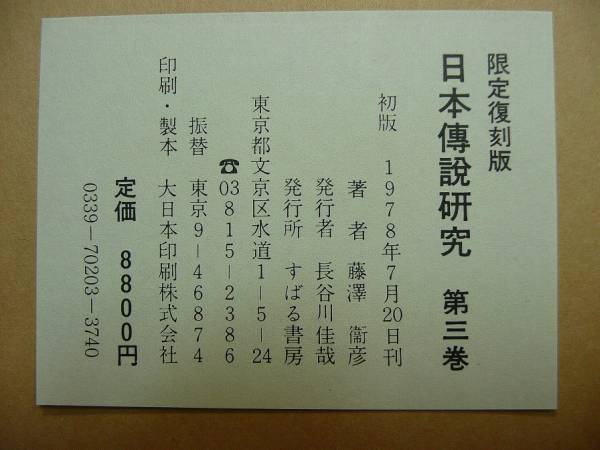 限定復刻版
日本傳說研究 第三巻
初版 1978年7月20日刊
著者 藤澤 衞彦
発行者 長谷川佳哉
発行所 すばる書房
東京都文京区水道1-5-24
☎03815-2386
振替 東京9-46874
印刷・製本 大日本印刷株式会社
定価 8800円
0339-70203-3740